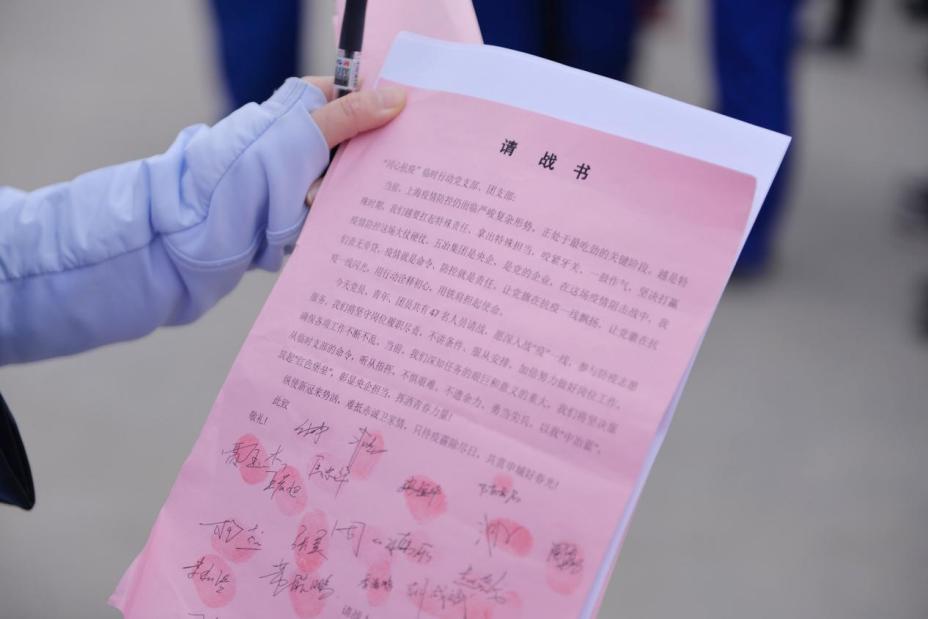 请战书
“同心抗疫”临时行动党支部、团支部：
当前，上海疫情防控仍面临严峻复杂形势，正处于最吃劲的关键阶段，越是特
殊时期，我们越要扛起特殊责任、拿出特殊担当，咬紧牙关、一鼓作气，坚决打赢
疫情防控这场大仗硬仗。五冶集团是央企，是党的企业，在这场疫情阻击战中，我
们责无旁贷。疫情就是命令、防控就是责任，让党旗在抗疫一线飘扬、让党徽在抗
疫一线闪光，用行动诠释初心，用铁肩担起使命。
今天党员、青年、团员共有47名人员请战，愿深入战“疫”一线，参与防疫志愿
服务，我们将坚守岗位履职尽责，不讲条件、服从安排，加倍努力做好岗位工作，
确保各项工作不断不乱。当前，我们深知任务的艰巨和意义的重大，我们将坚决服
从临时支部的命令，听从指挥，不惧艰难、不遗余力、勇当尖兵，以我“中冶蓝”，
筑起“红色堡垒”，彰显央企担当，挥洒青春力量！
纵使新冠来势汹，难抵赤诚卫家情，只待疫霾除尽日，共赏申城好春光！
此致
敬礼！
请战人